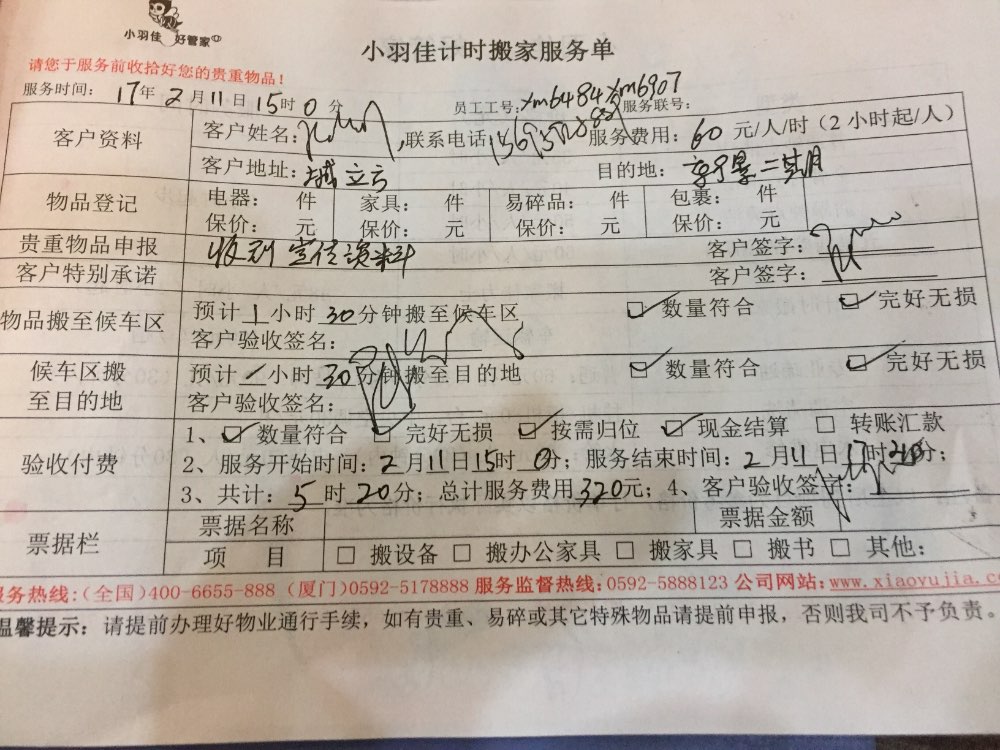 小羽佳 好管家
小羽佳计时搬家服务单
请您于服务前收拾好您的贵重物品！
服务时间： 17年 2月 11日 15时 0分 员工工号：xm6484 xm6907 服务联号：
客户资料 客户姓名： 联系电话 服务费用：60元/人/时（2小时起/人）
客户地址： 目的地：
物品登记 电器： 件 家具： 件 易碎品： 件 包裹： 件
保价： 元 保价： 元 保价： 元 保价： 元
贵重物品申报 收到宣传资料 客户签字：
客户特别承诺 客户签字：
物品搬至候车区 预计1小时30分钟搬至候车区 数量符合 完好无损
客户验收签名：
候车区搬至目的地 预计 小时30分钟搬至目的地 数量符合 完好无损
客户验收签名：
验收付费 1、 数量符合 完好无损 按需归位 现金结算 转账汇款
2、服务开始时间：2月11日15时0分；服务结束时间：2月11日 时 分；
3、共计：5时20分；总计服务费用320元；4、客户验收签字：
票据栏 票据名称 票据金额
项 目 搬设备 搬办公家具 搬家具 搬书 其他：
服务热线：（全国）400-6655-888（厦门）0592-5178888 服务监督热线：0592-5888123 公司网站：www.xiaoyujia.co
温馨提示：请提前办理好物业通行手续，如有贵重、易碎或其它特殊物品请提前申报，否则我司不予负责。